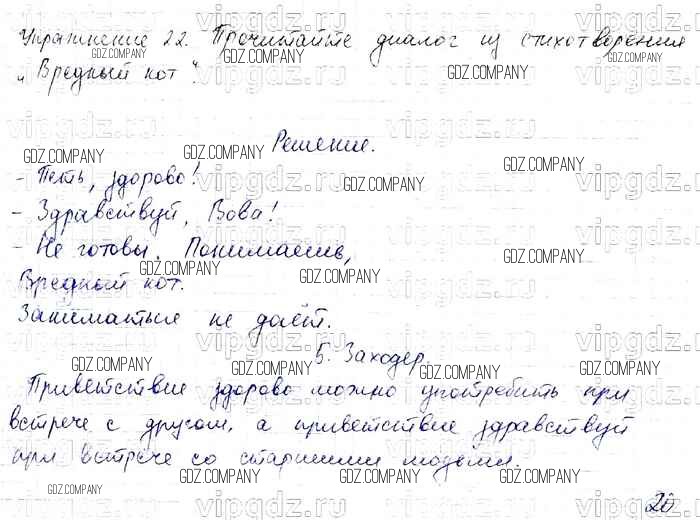 Упражнение 22. Прочитайте диалог из стихотворения
„Вредный кот".
Решение.
- Петь, здорово!
- Здравствуй, Вова!
- Не готовы. Понимаешь,
Вредный кот.
Заниматься не даёт.
Б. Заходер.
Приветствие здорово можно употребить при
встрече с другом, а приветствие здравствуй
при встрече со старшими людьми.
20